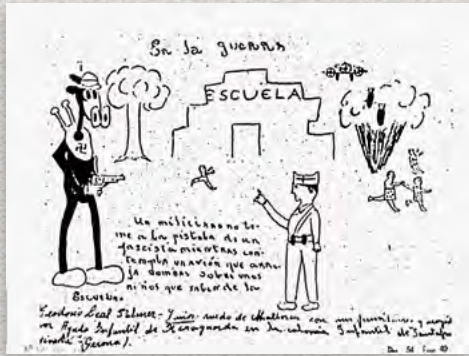 En la guerra
ESCUELA
Un miliciano no te-
me a la pistola de un
fascista mientras con-
templa un avión que arro-
ja bombas sobre unos
niños que salen de la
Escuela.
Teodoro Leal
con mi
Ayuda Infantil de Retaguardia en la colonia Infantil de
(Gerona).